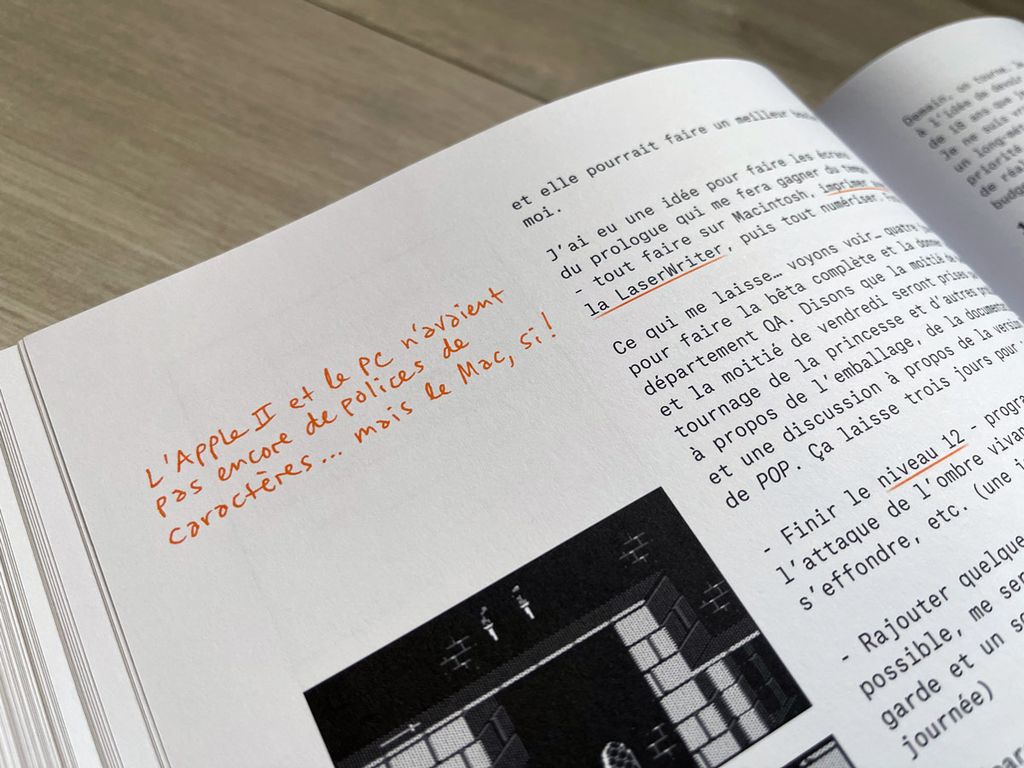 L'Apple II et le PC n'avaient
pas encore de polices de
caractères... mais le Mac, si!
et elle pourrait faire un meilleur
moi.
J'ai eu une idée pour faire les écrans
du prologue qui me fera gagner du temps
- tout faire sur Macintosh, imprimer
la LaserWriter, puis tout numériser.
Ce qui me laisse… voyons voir… quatre
pour faire la bêta complète et la donner
département QA. Disons que la moitié de
et la moitié de vendredi seront prises
tournage de la princesse et d'autres
à propos de l'emballage, de la documentation
et une discussion à propos de la version
de POP. Ça laisse trois jours pour
- Finir le niveau 12 - progra
l'attaque de l'ombre vivan
s'effondre, etc. (une jo
- Rajouter quelque
possible, me ser
garde et un so
journée)
Demain, on tourne,
à l'idée de devoir
de 18 ans que
Je ne suis
un long-mé
priorité
de réa
budg